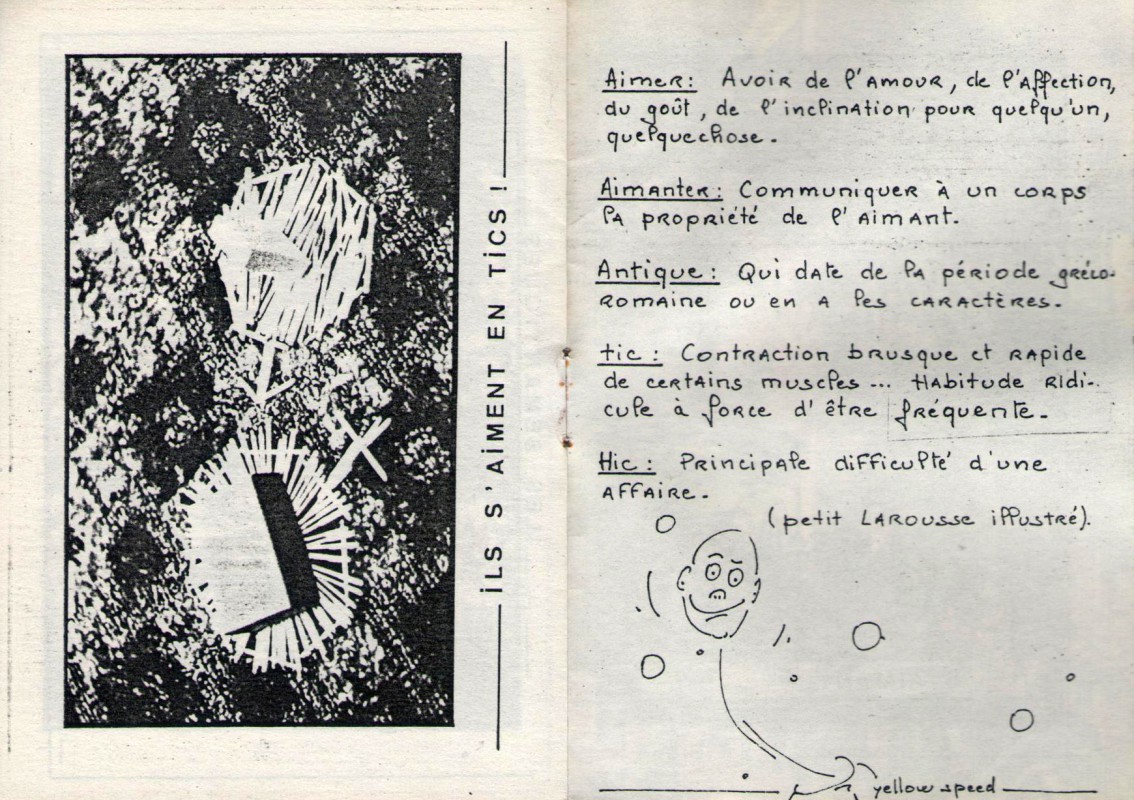 ILS S'AIMENT EN TICS !
Aimer : Avoir de l'amour, de l'affection,
du goût, de l'inclination pour quelqu'un,
quelquechose.
Aimanter : Communiquer à un corps
la propriété de l'aimant.
Antique : Qui date de la période gréco-
romaine ou en a les caractères.
tic : Contraction brusque et rapide
de certains muscles ... Habitude ridi-
cule à force d'être fréquente.
Hic : Principale difficulté d'une
affaire.
(petit Larousse illustré).
yellow speed